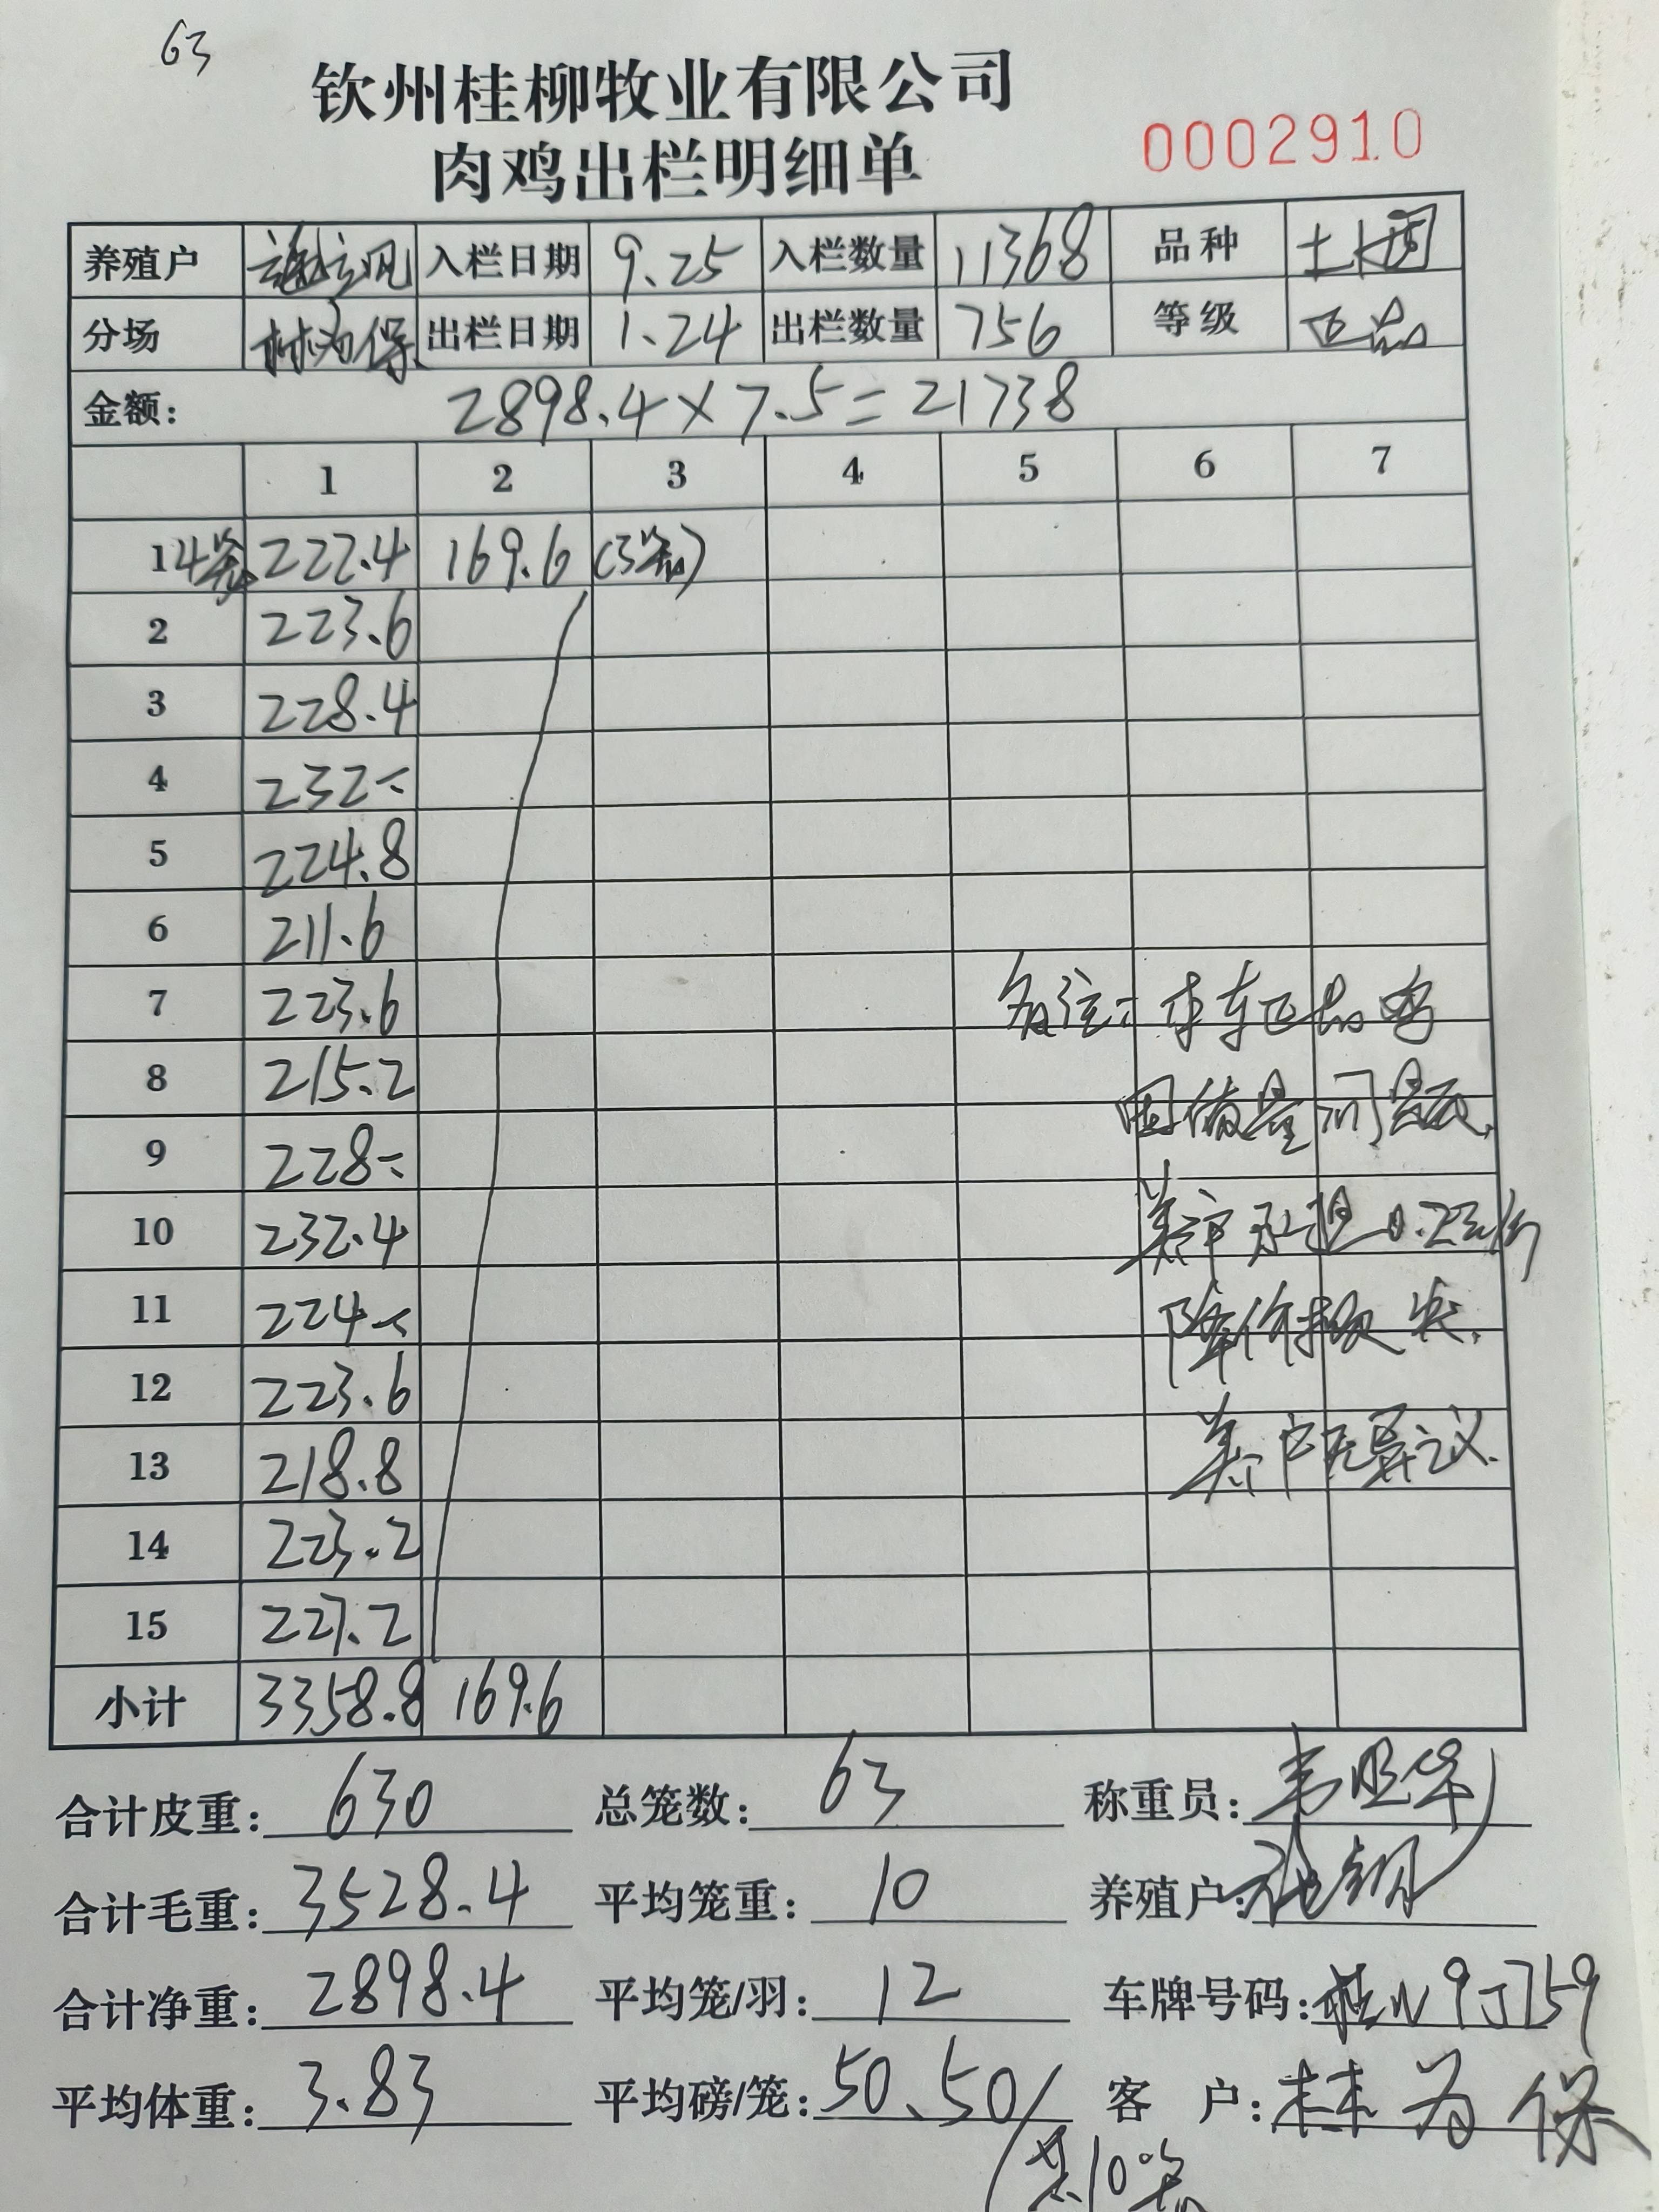 63
钦州桂柳牧业有限公司
肉鸡出栏明细单
0002910
养殖户 入栏日期 9.25 入栏数量 11368 品种 土
分场 林为保 出栏日期 1.24 出栏数量 756 等级 正品
金额: 2898.4×7.5=21738
1 2 3 4 5 6 7
1 4笼 222.4 169.6 (3笼)
2 223.6
3 228.4
4 232
5 224.8
6 211.6
7 223.6
8 215.2
9 228
10 232.4
11 224
12 223.6
13 218.8
14 223.2
15 227.2
备注: 本车正品鸡
因质量问题,
养户承担0.2元/斤
降价损失.
养户无异议.
小计 3358.8 169.6
合计皮重: 630 总笼数: 63 称重员: 韦
合计毛重: 3528.4 平均笼重: 10 养殖户:
合计净重: 2898.4 平均笼/羽: 12 车牌号码: 桂N9J759
平均体重: 3.83 平均磅/笼: 50.50 客 户: 林为保